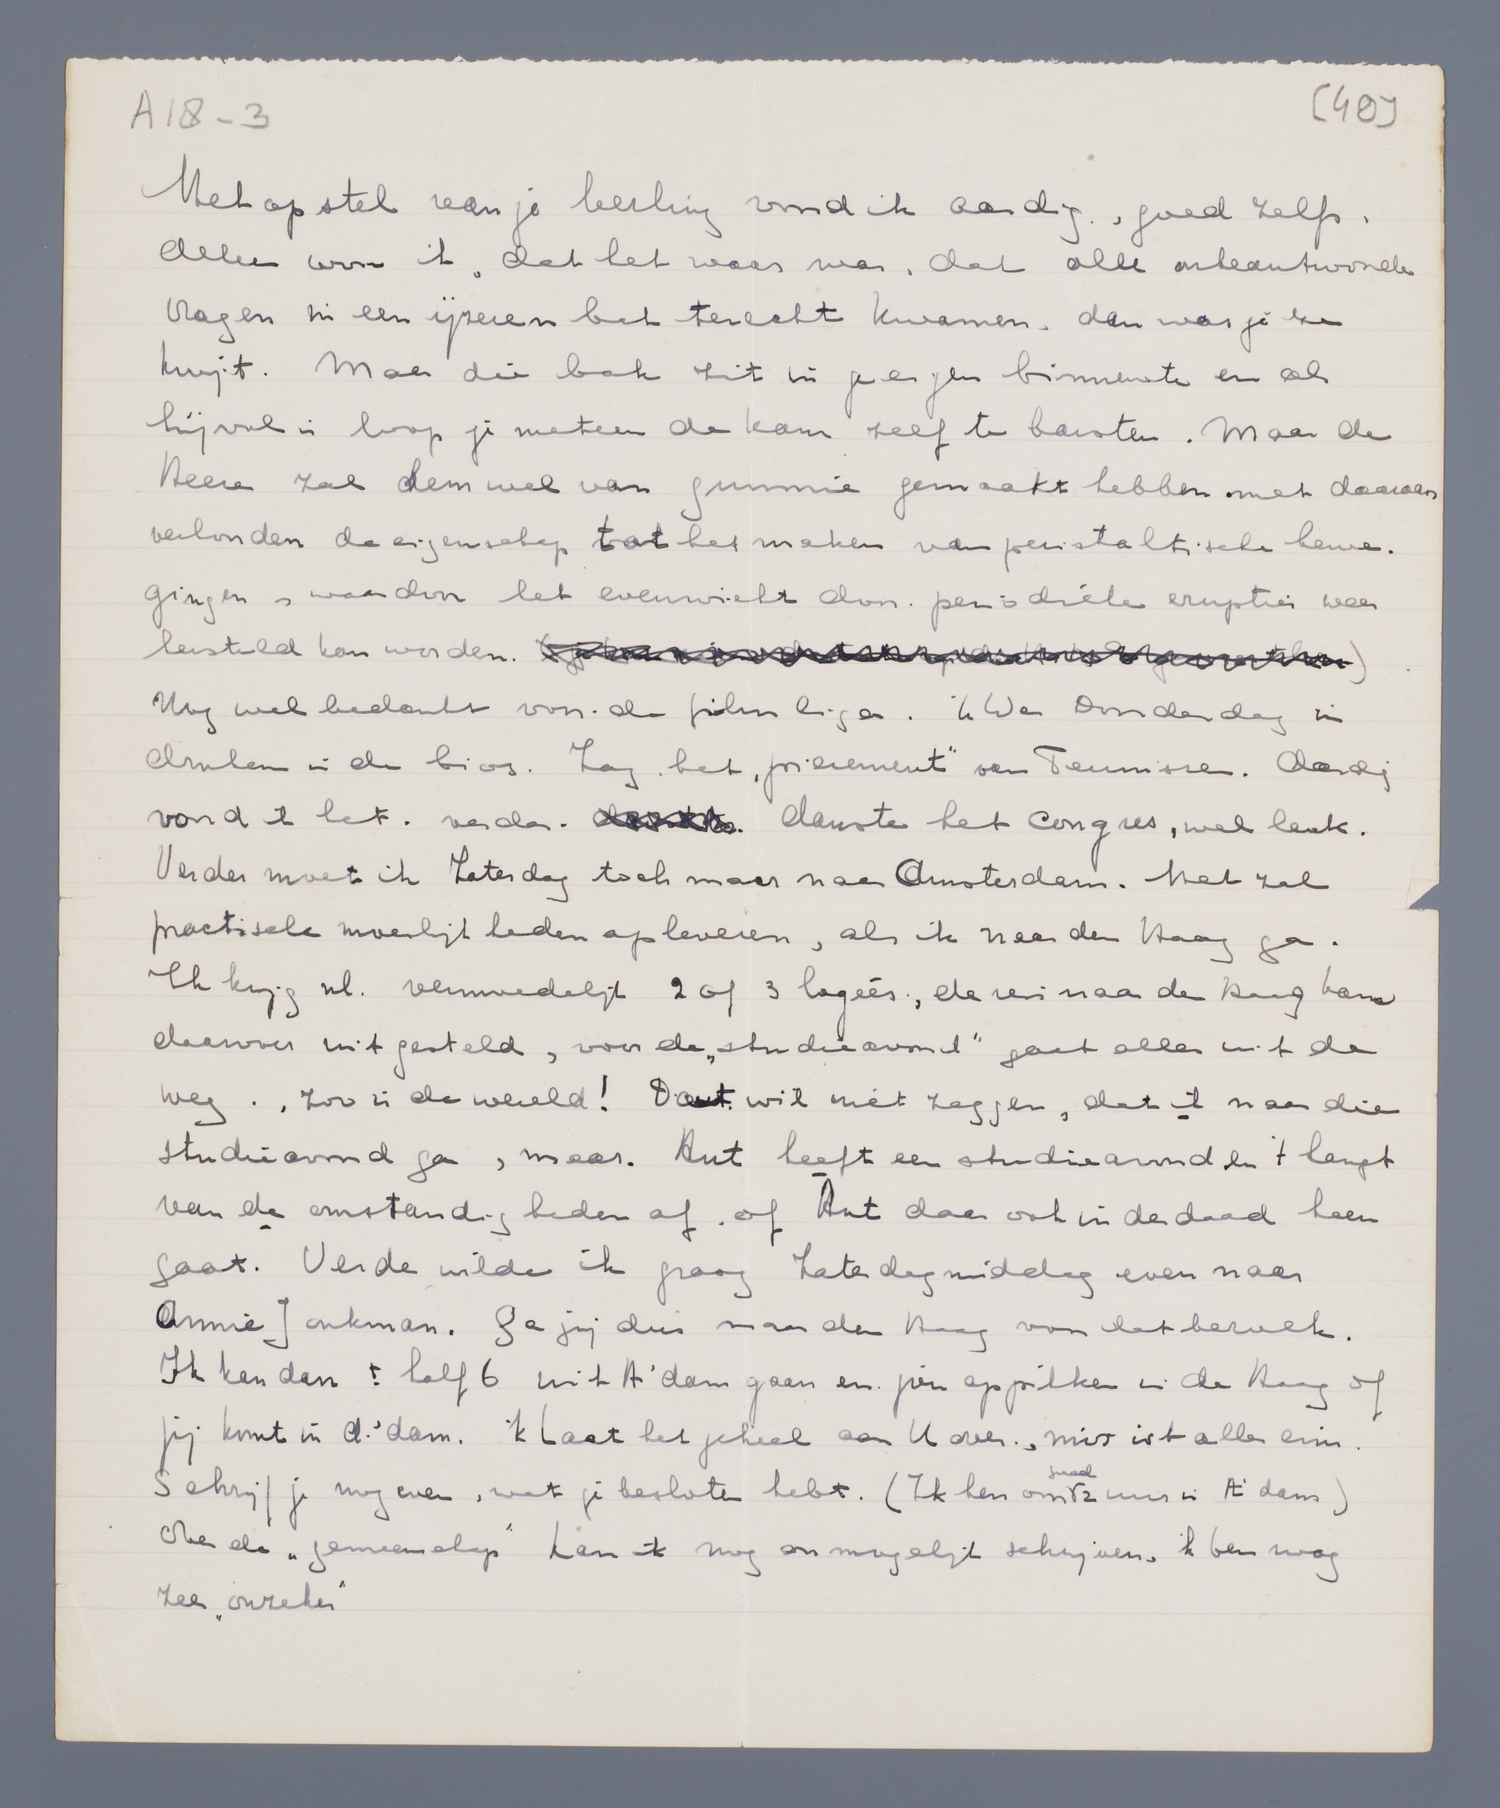 A18-3
[40]
Het opstel van je leerling vond ik aardig, goed zelfs.
Alleen wou ik, dat het waar was, dat alle onbeantwoorde
vragen in een ijzeren bak terecht kwamen, dan was je ze
kwijt. Maar die bak zit in je eigen binnenste en als
hij vol is loop je meteen de kans zelf te barsten. Maar de
Heere zal hem wel van gummie gemaakt hebben met daaraan
verbonden de eigenschap tot het maken van peristaltische bewe-
gingen, waardoor het evenwicht door periodieke erupties weer
hersteld kan worden.
Nog wel bedankt voor de film liga. 'k Was Donderdag in
Arnhem in de bios. Zag het „pierement" van Teunissen. Aardig
vond ik het. verder. danste het congres, wel leuk.
Verder moet ik Zaterdag toch maar naar Amsterdam. Het zal
practische moeilijkheden opleveren, als ik naar den Haag ga.
Ik krijg nl. vermoedelijk 2 of 3 logées, de reis naar den Haag
daarvoor uitgesteld, voor de „studieavond" gaat alles uit de
weg, zoo is de wereld! Dat wil niet zeggen, dat ik naar die
studieavond ga, maar. Aut heeft een studieavond en 't hangt
van de omstandigheden af, of Aut daar ook inderdaad heen
gaat. Verder wilde ik graag Zaterdagmiddag even naar
Annie Jonkman. Ga jij dus naar den Haag voor dat bezoek.
Ik kan dan ± half 6 uit A'dam gaan en jou oppikken in de Haag of
jij komt in A'dam. 'k Laat het geheel aan U over, mir ist alles eins.
Schrijf je nog even, wat je besloten hebt. (Ik ben om 12 uur in A'dam)
Over de „gemeenschap" kan ik nog onmogelijk schrijven, 'k ben nog
zeer „onzeker"